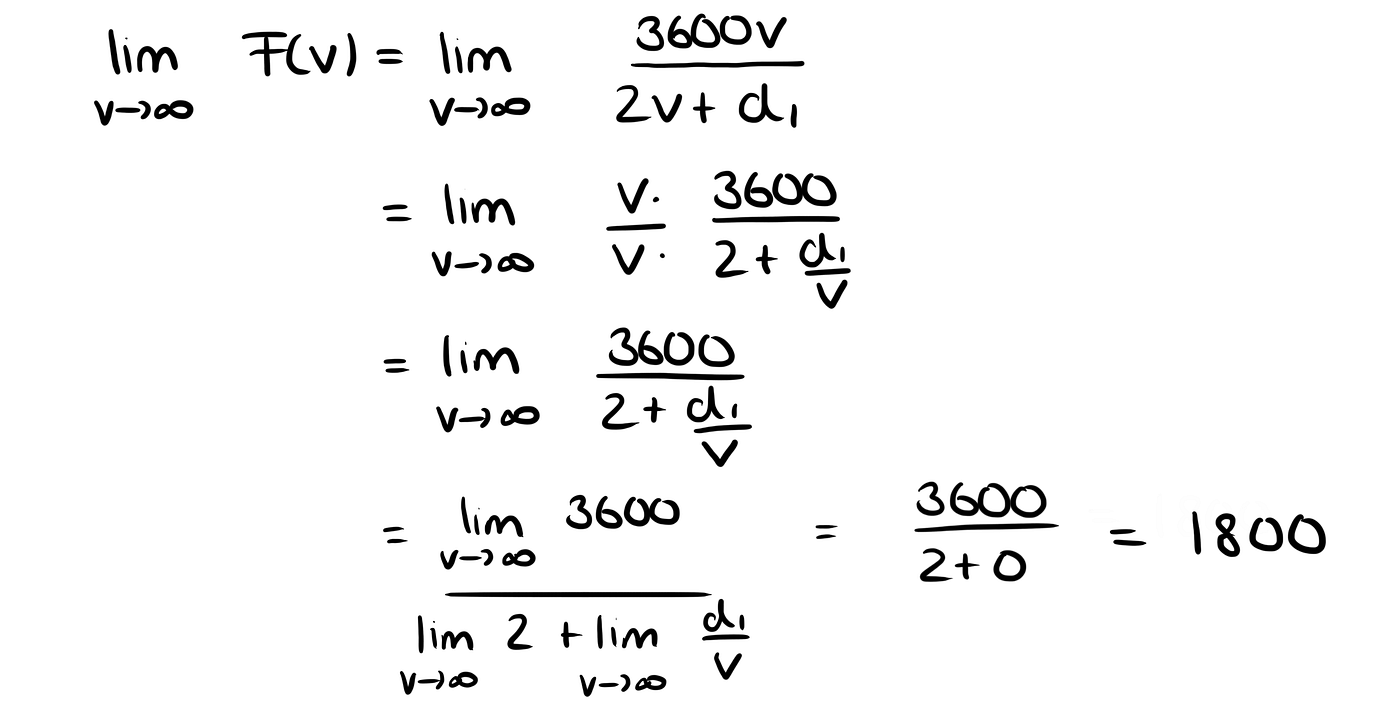 lim v→∞ F(v) = lim v→∞ 3600v / 2v + d₁
= lim v→∞ v· / v· 3600 / 2 + d₁/v
= lim v→∞ 3600 / 2 + d₁/v
= lim v→∞ 3600 / lim v→∞ 2 + lim v→∞ d₁/v = 3600 / 2+0 = 1800